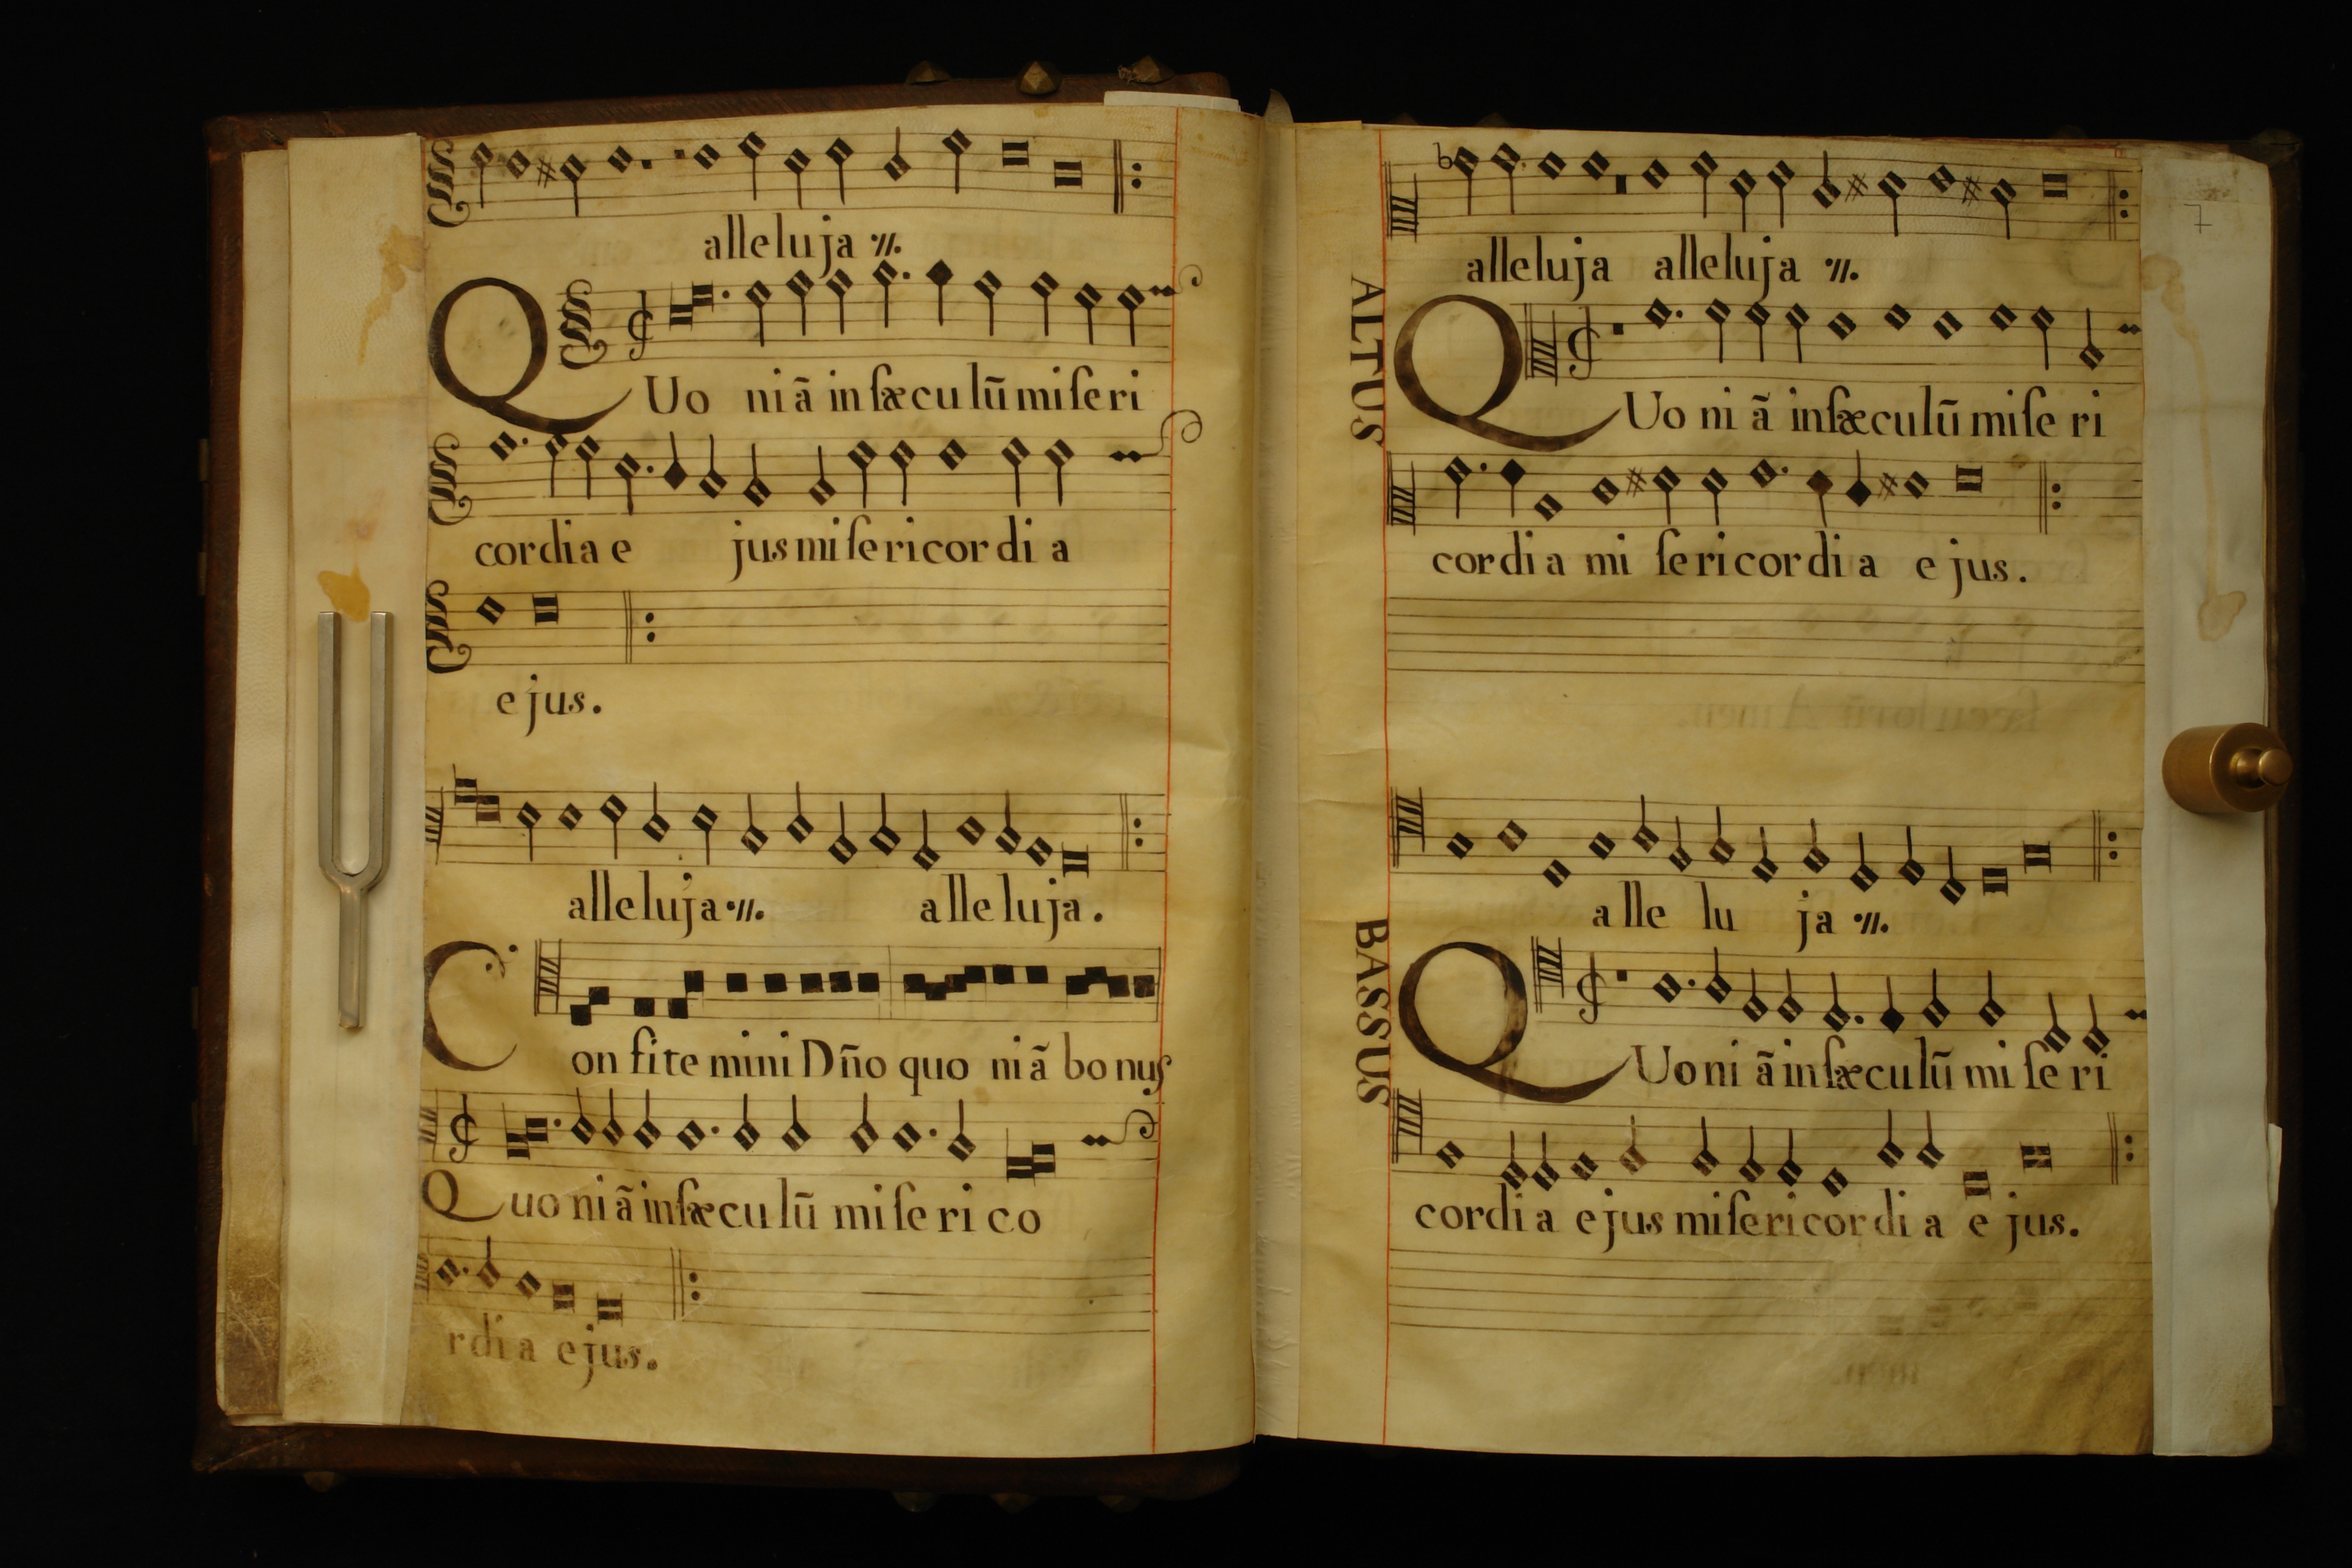 alleluja ·//.
QUo niã in ſæculũ miſeri
cordia e jus miſericordia
ejus.
alleluja ·//. alleluja.
Confitemini Dño quoniã bonus
Quoniã inſæculũ miſerico
rdia ejus.
7
alleluja alleluja ·//.
ALTUS
QUoniã inſæculũ miſeri
cordia miſericordia ejus.
alleluja ·//.
BASSUS
QUoniã inſæculũ miſeri
cordia ejus miſericordia ejus.